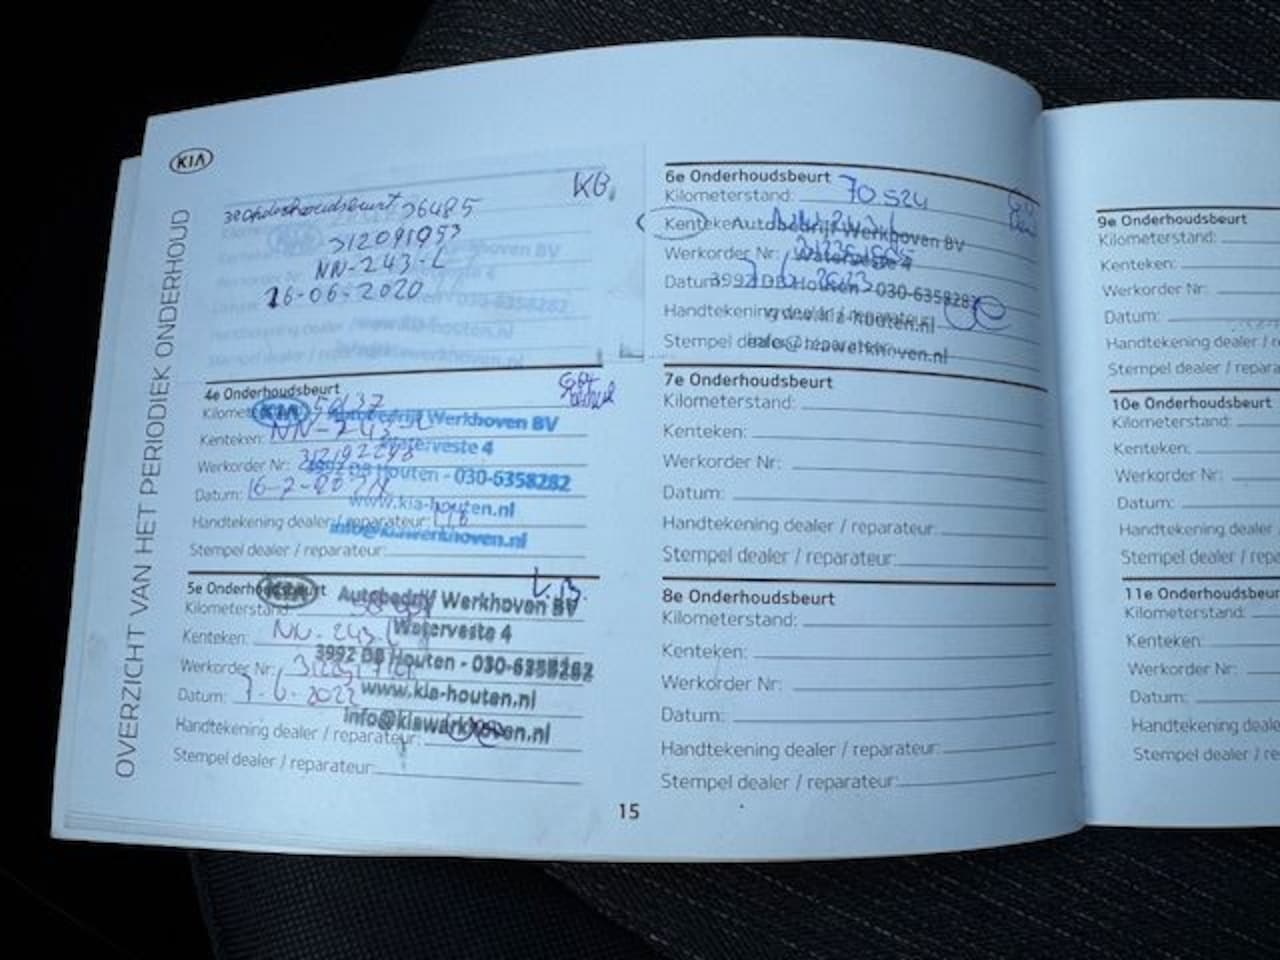 KIA
OVERZICHT VAN HET PERIODIEK ONDERHOUD
3e Onderhoudsbeurt 36485
KB.
312091953
NN-243-L
26-06-2020
4e Onderhoudsbeurt
KIA Autobedrijf Werkhoven BV
Kenteken: NN-243-L
Waterveste 4
Werkorder Nr:
3992 DB Houten - 030-6358282
Datum: 16-7-
www.kia-houten.nl
Handtekening dealer / reparateur:
info@kiawerkhoven.nl
Stempel dealer / reparateur:
5e Onderhoudsbeurt
KIA Autobedrijf Werkhoven BV
Kilometerstand:
Kenteken: NN-243-L
Waterveste 4
3992 DB Houten - 030-6358282
Werkorder Nr:
Datum: 7-6-2022
www.kia-houten.nl
info@kiawerkhoven.nl
Handtekening dealer / reparateur:
Stempel dealer / reparateur:
6e Onderhoudsbeurt
Kilometerstand: 70524
Kenteken:
Autobedrijf Werkhoven BV
Werkorder Nr:
Waterveste 4
Datum:
3992 DB Houten - 030-6358282
Handtekening dealer / reparateur:
www.kia-houten.nl
Stempel dealer / reparateur:
info@kiawerkhoven.nl
7e Onderhoudsbeurt
Kilometerstand:
Kenteken:
Werkorder Nr:
Datum:
Handtekening dealer / reparateur:
Stempel dealer / reparateur:
8e Onderhoudsbeurt
Kilometerstand:
Kenteken:
Werkorder Nr:
Datum:
Handtekening dealer / reparateur:
Stempel dealer / reparateur:
15
9e Onderhoudsbeurt
Kilometerstand:
Kenteken:
Werkorder Nr:
Datum:
Handtekening dealer /
Stempel dealer /
10e Onderhoudsbeurt
Kilometerstand:
Kenteken:
Werkorder Nr:
Datum:
Handtekening dealer
Stempel dealer /
11e Onderhoudsbeur
Kilometerstand:
Kenteken:
Werkorder Nr:
Datum:
Handtekening dealer
Stempel dealer /